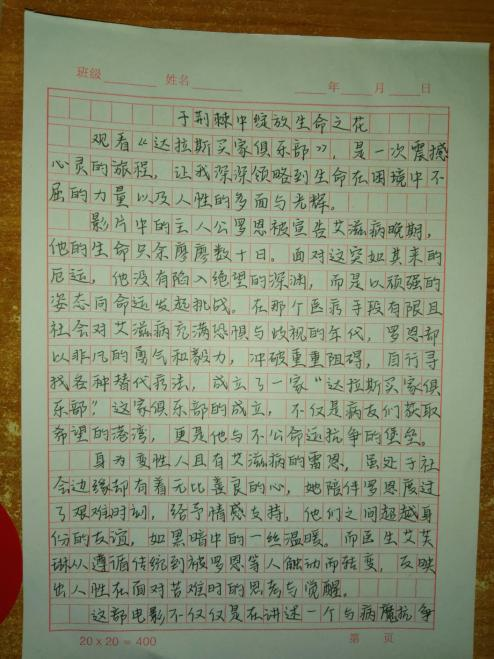 班级 姓名 年 月 日
于荆棘中绽放生命之花
观看《达拉斯买家俱乐部》，是一次震撼
心灵的旅程，让我深深领略到生命在困境中不
屈的力量以及人性的多面与光辉。
影片中的主人公罗恩被宣告艾滋病晚期，
他的生命只余廖廖数十日。面对这突如其来的
厄运，他没有陷入绝望的深渊，而是以顽强的
姿态向命运发起挑战。在那个医疗手段有限且
社会对艾滋病充满恐惧与歧视的年代，罗恩却
以非凡的勇气和毅力，冲破重重阻碍，自行寻
找各种替代疗法，成立了一家“达拉斯买家俱
乐部”。这家俱乐部的成立，不仅是病友们获取
希望的港湾，更是他与不公命运抗争的堡垒。
身为变性人且有艾滋病的雷恩，虽处于社
会边缘却有着无比善良的心，她陪伴罗恩度过
了艰难时刻，给予情感支持，他们之间超越身
份的友谊，如黑暗中的一丝温暖。而医生艾芙
琳从遵循传统到被罗恩等人触动而转变，反映
出人性在面对苦难时的思考与觉醒。
这部电影不仅仅是在讲述一个与病魔抗争
20×20=400 第 页